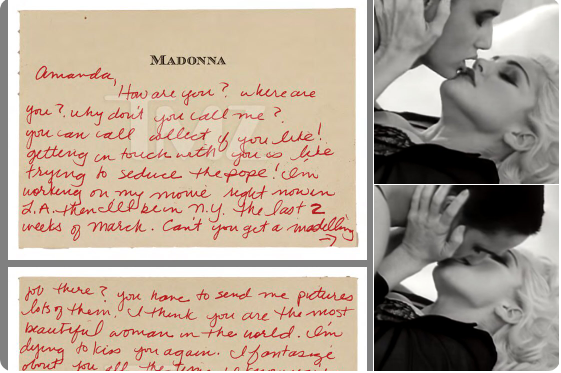 MADONNA
Amanda,
How are you? where are
you? why don't you call me?
you can call collect if you like!
getting in touch with you is like
trying to seduce the pope! I'm
working on my movie right now in
L.A. then I'll be in N.Y. the last 2
weeks of March. Can't you get a modelling
job there? you have to send me pictures
lots of them. I think you are the most
beautiful woman in the world. I'm
dying to kiss you again. I fantasize
about you all the time